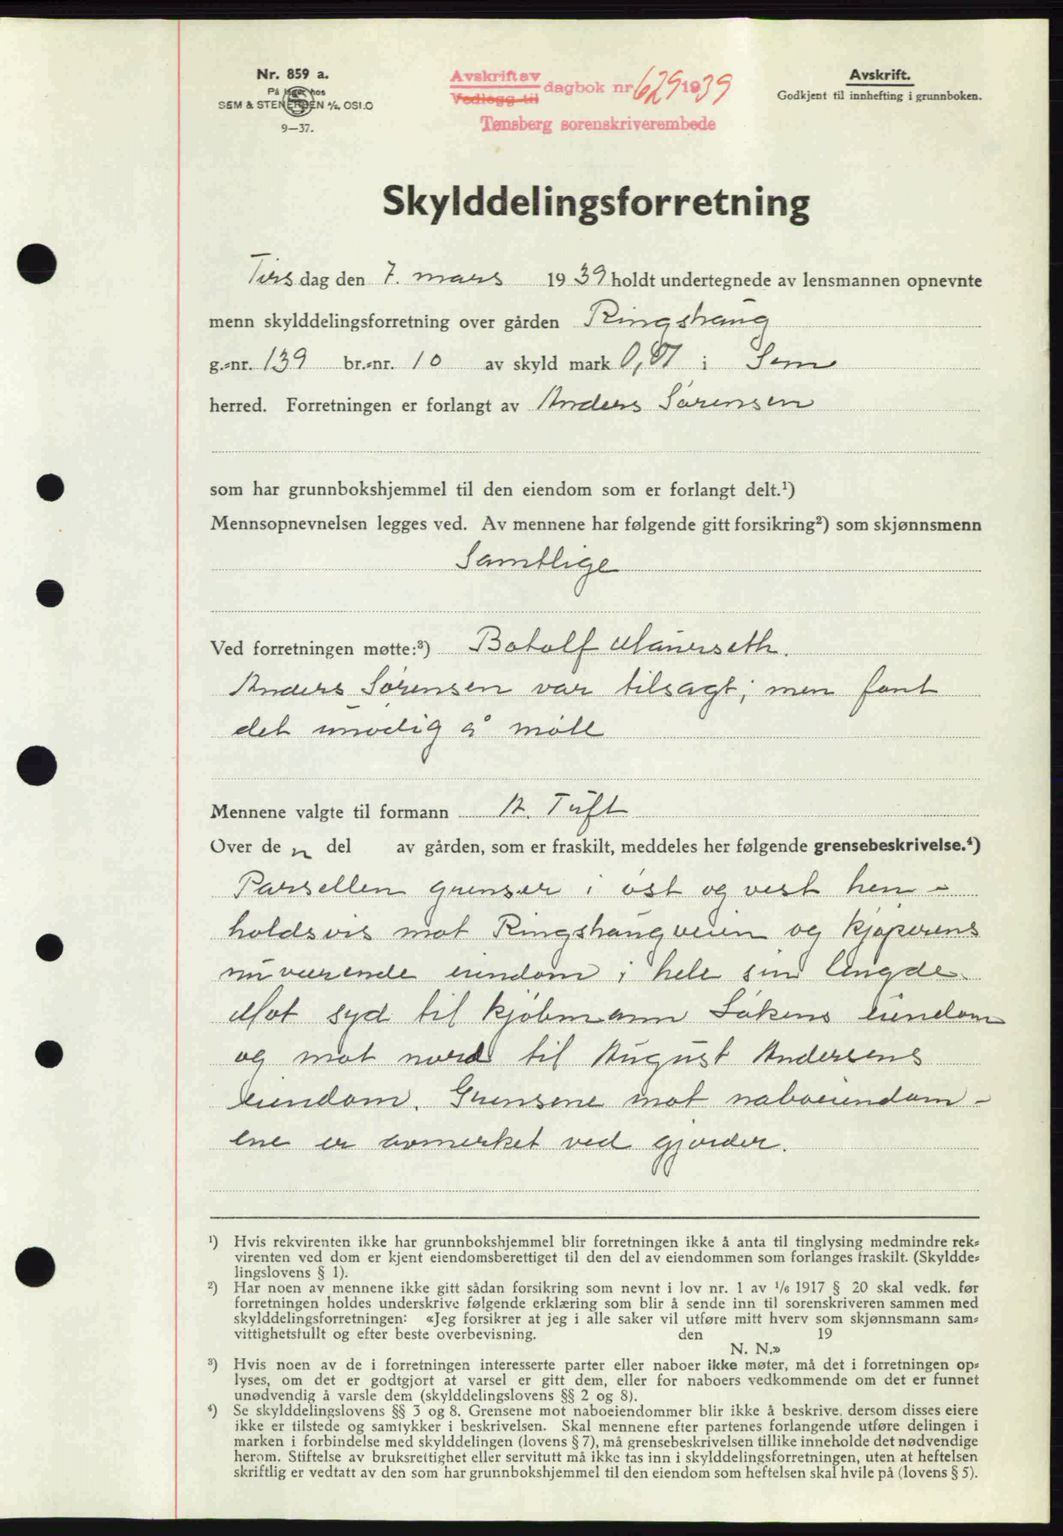 Nr. 859 a.
På lager hos
SEM & STENERSEN A/S, OSLO
9—37.
Avskrift av
Vedlegg til
dagbok nr 629 1939
Tønsberg sorenskriverembede
Avskrift.
Godkjent til innhefting i grunnboken.
Skylddelingsforretning
Tirsdag den 7. mars 1939 holdt undertegnede av lensmannen opnevnte
menn skylddelingsforretning over gården Ringshaug
g.-nr. 139 br.-nr. 10 av skyld mark i Sem
herred. Forretningen er forlangt av Anders Sørensen
som har grunnbokshjemmel til den eiendom som er forlangt delt.¹)
Mennsopnevnelsen legges ved. Av mennene har følgende gitt forsikring²) som skjønnsmenn
Samtlige
Ved forretningen møtte:³) Botolf
Anders Sørensen var tilsagt; men fant
det unødig å møte
Mennene valgte til formann A. Tuft
Over den del av gården, som er fraskilt, meddeles her følgende grensebeskrivelse.⁴)
Parsellen grenser i øst og vest hen-
holdsvis mot Ringshaugveien og kjøperens
nuværende eiendom i hele sin lengde.
Mot syd til kjøbmann eiendom
og mot nord til August Andersens
eiendom. Grensene mot naboeiendom-
ene er avmerket ved gjerder.
¹) Hvis rekvirenten ikke har grunnbokshjemmel blir forretningen ikke å anta til tinglysing medmindre rek-
virenten ved dom er kjent eiendomsberettiget til den del av eiendommen som forlanges fraskilt. (Skyldde-
lingslovens § 1).
²) Har noen av mennene ikke gitt sådan forsikring som nevnt i lov nr. 1 av 1/6 1917 § 20 skal vedk. før
forretningen holdes underskrive følgende erklæring som blir å sende inn til sorenskriveren sammen med
skylddelingsforretningen: «Jeg forsikrer at jeg i alle saker vil utføre mitt hverv som skjønnsmann sam-
vittighetsfullt og efter beste overbevisning. den 19
N. N.»
³) Hvis noen av de i forretningen interesserte parter eller naboer ikke møter, må det i forretningen op-
lyses, om det er godtgjort at varsel er gitt dem, eller for naboers vedkommende om det er funnet
unødvendig å varsle dem (skylddelingslovens §§ 2 og 8).
⁴) Se skylddelingslovens §§ 3 og 8. Grensene mot naboeiendommer blir ikke å beskrive, dersom disses eiere
ikke er tilstede og samtykker i beskrivelsen. Skal mennene efter partenes forlangende utføre delingen i
marken i forbindelse med skylddelingen (lovens § 7), må grensebeskrivelsen tillike inneholde det nødvendige
herom. Stiftelse av bruksrettighet eller servitutt må ikke tas inn i skylddelingsforretningen, uten at heftelsen
skriftlig er vedtatt av den som har grunnbokshjemmel til den eiendom som heftelsen skal hvile på (lovens § 5).